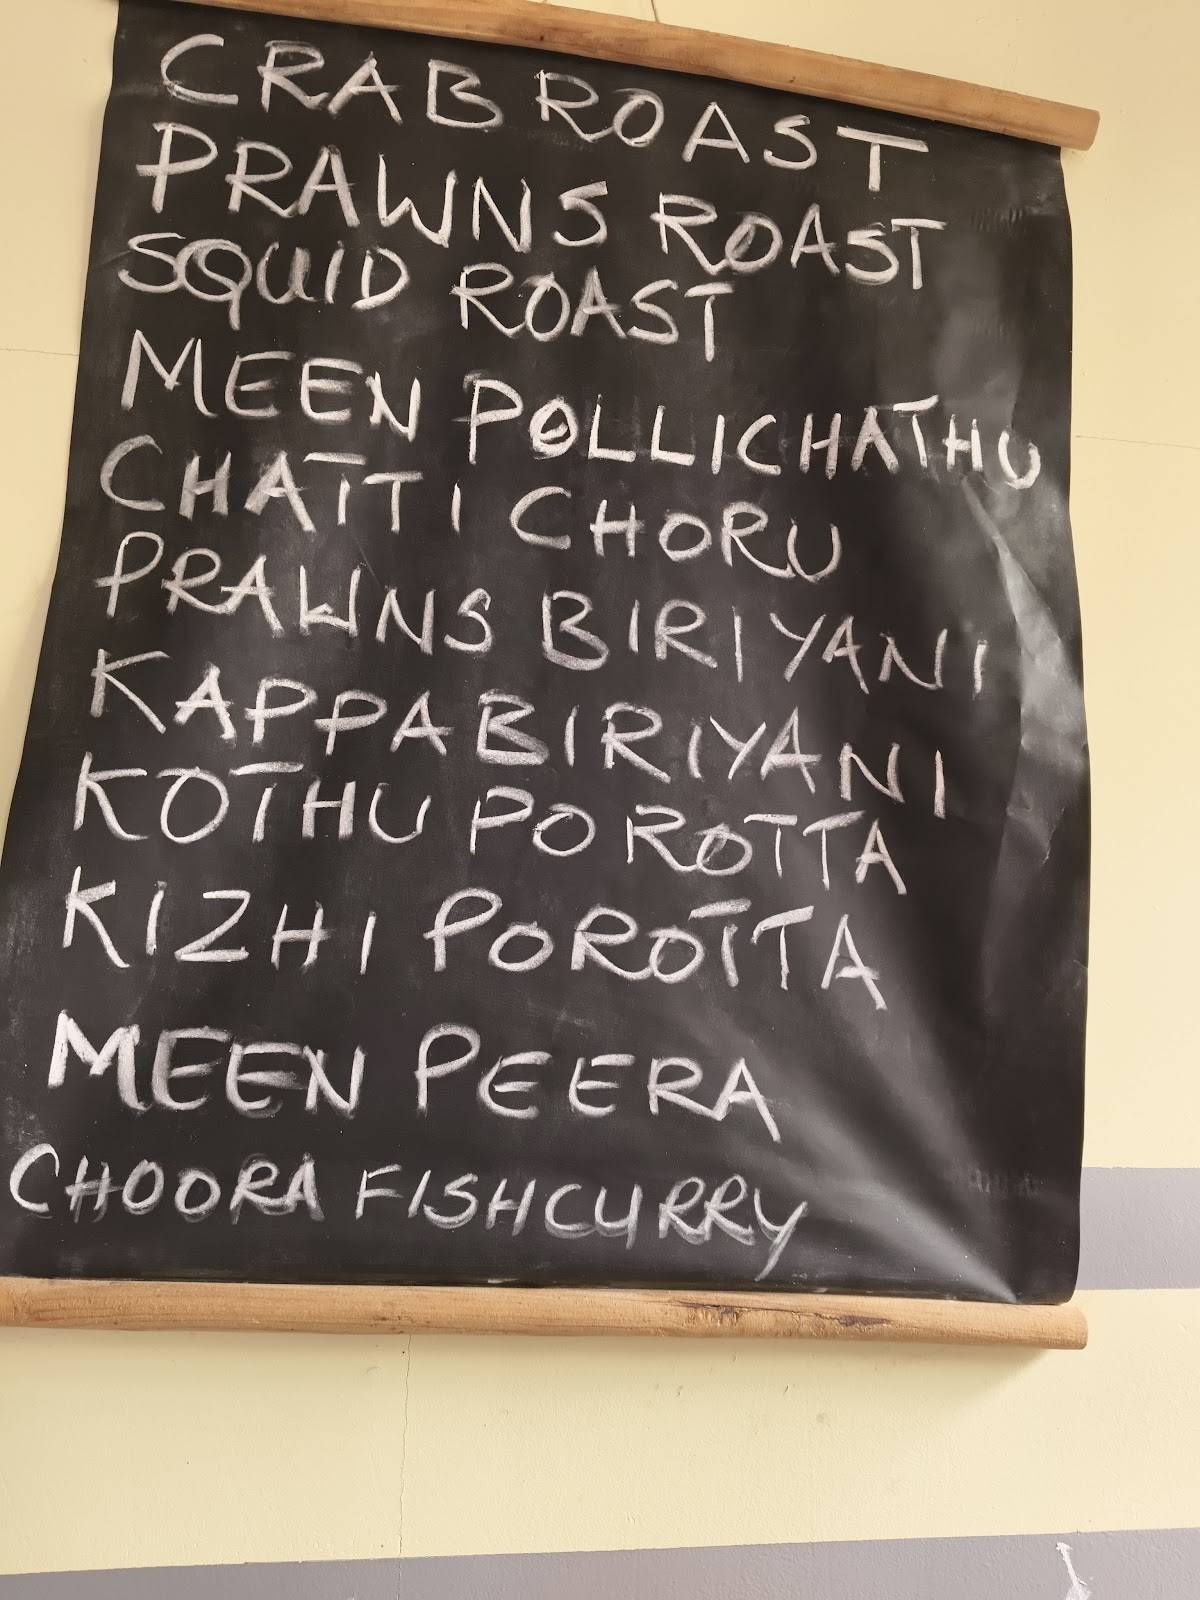 CRAB ROAST
PRAWNS ROAST
SQUID ROAST
MEEN POLLICHATHU
CHATTI CHORU
PRAWNS BIRIYANI
KAPPA BIRIYANI
KOTHU POROTTA
KIZHI POROTTA
MEEN PEERA
CHOORA FISH CURRY